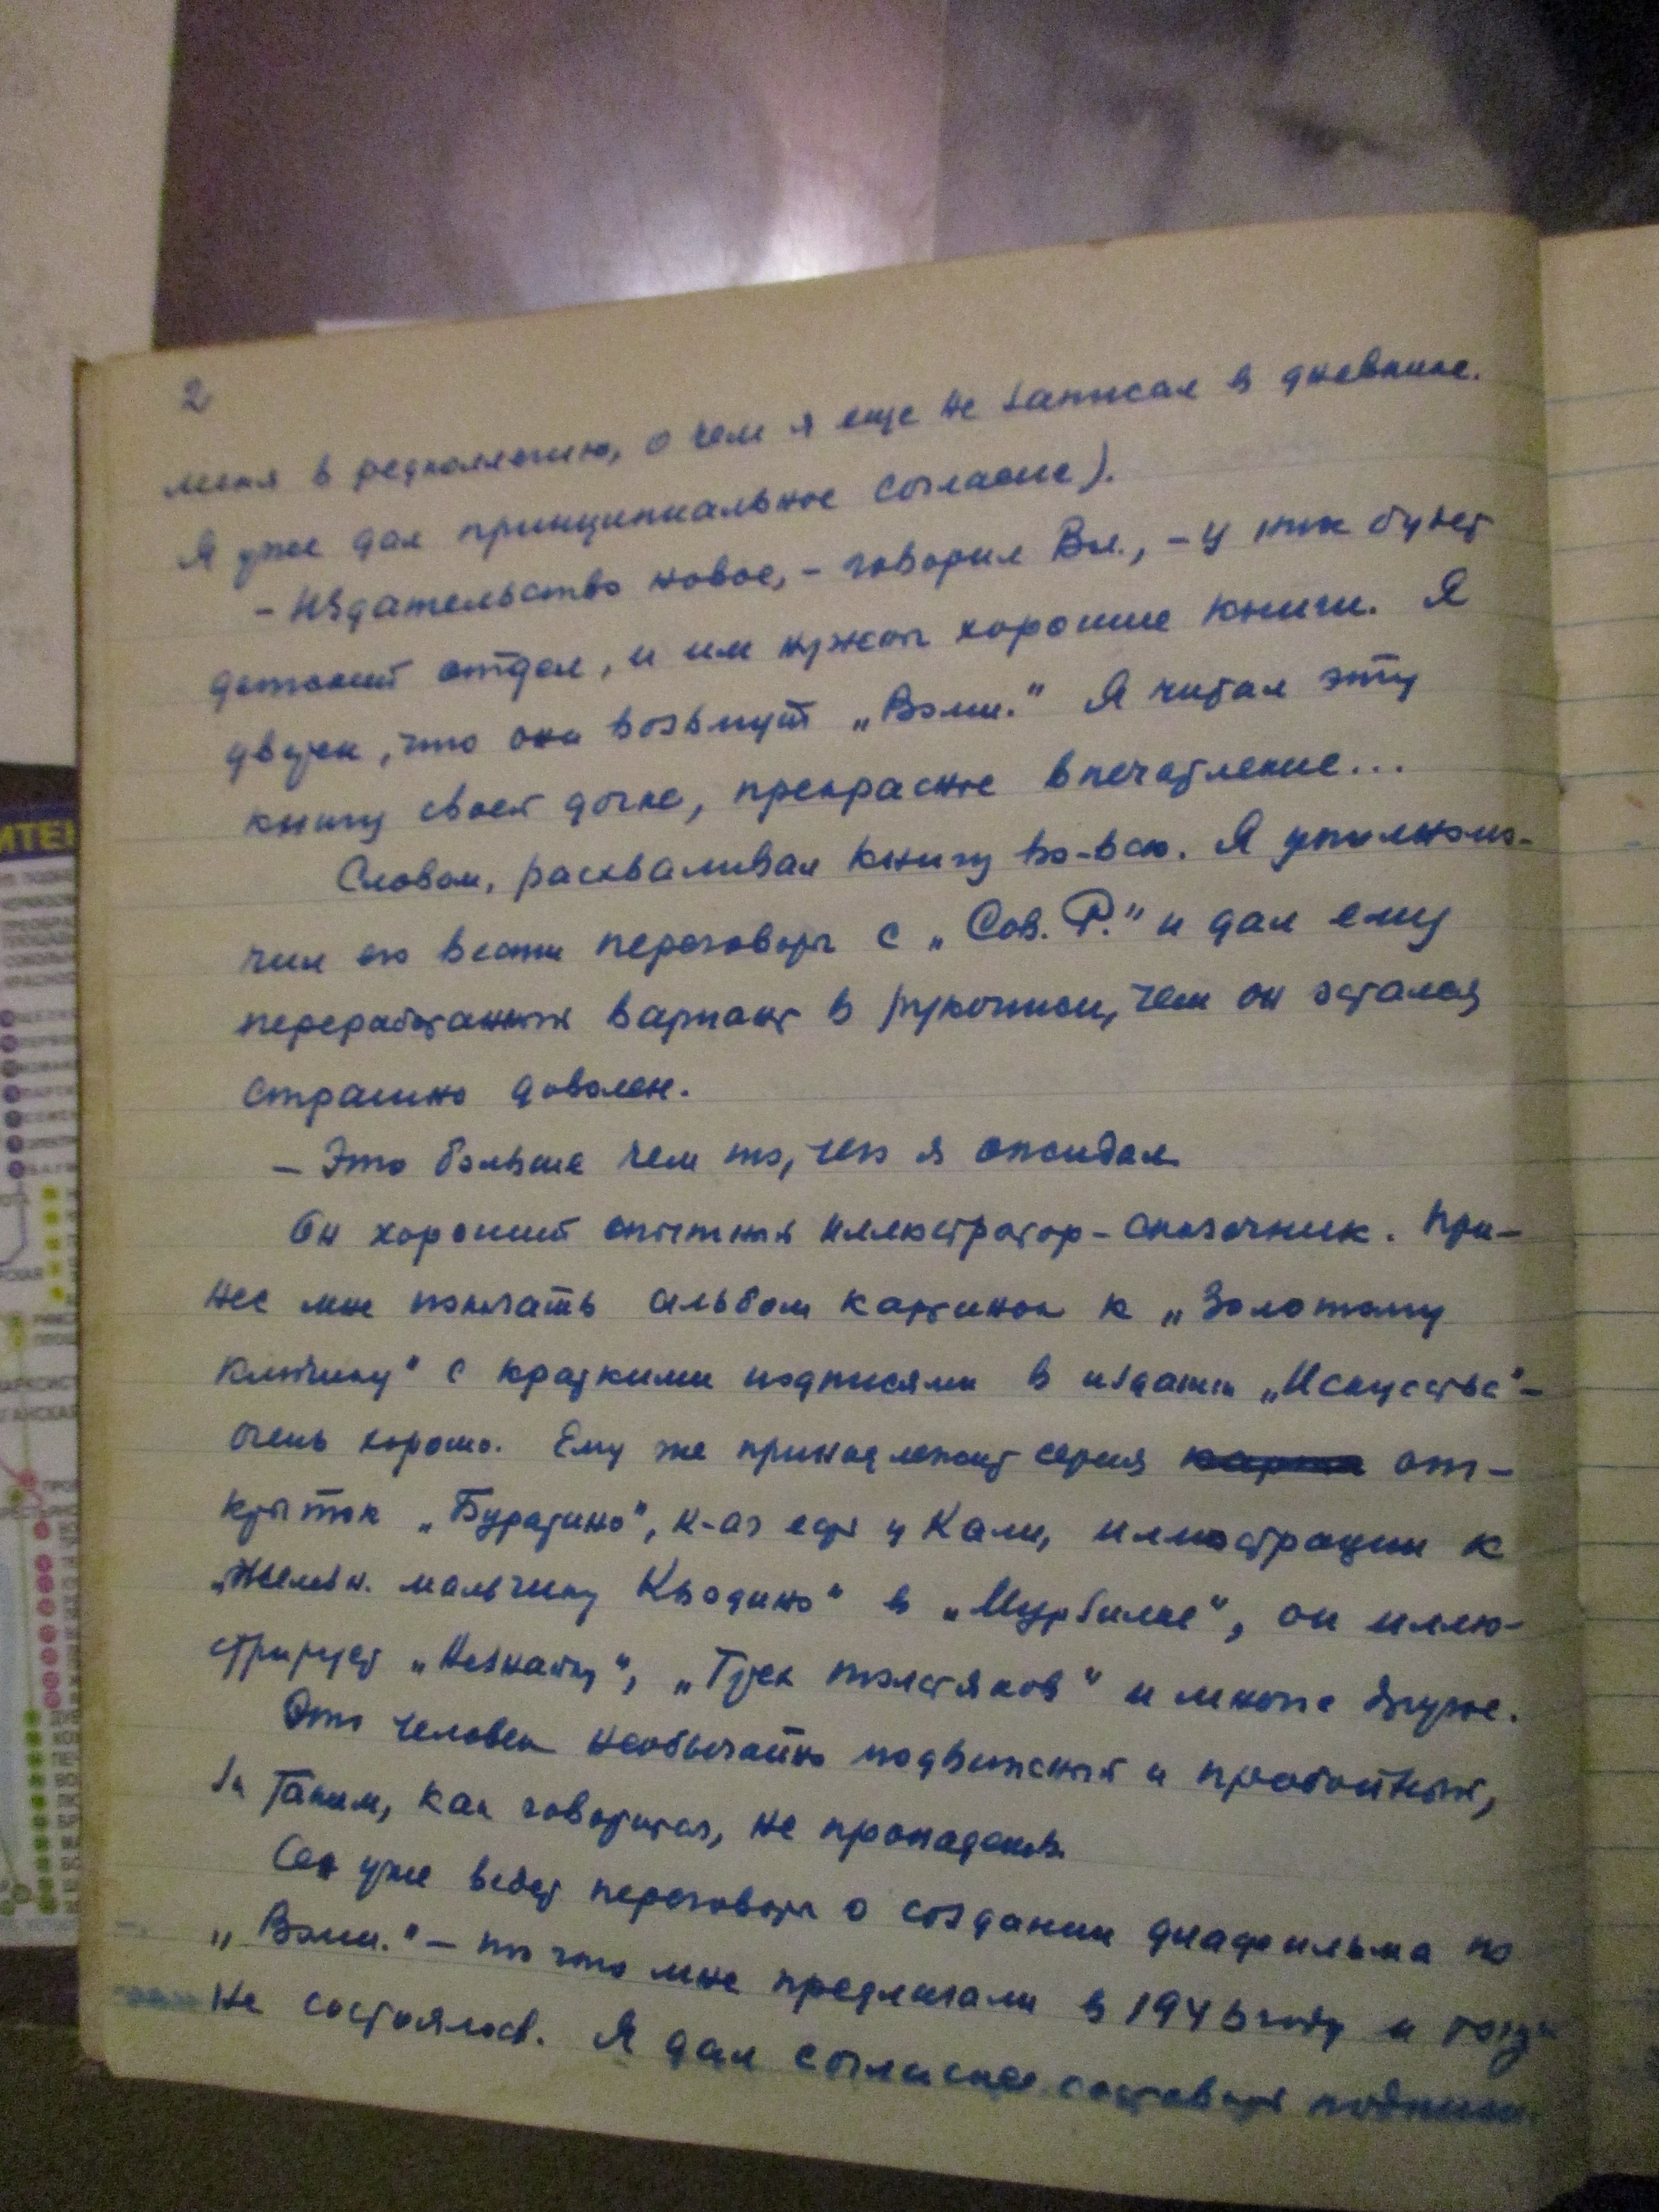 2
меня в редколлегию, о чем я еще не записал в дневнике.
Я уже дал принципиальное согласие).
– Издательство новое, – говорил Вл., – у них будет
детский отдел, и им нужны хорошие книги. Я
двужен, что они возьмут „Волш." Я читал эту
книгу своей дочке, прекрасное впечатление...
Словом, расхваливал книгу во-всю. Я уполномо-
чил его вести переговоры с „Сов. Р." и дал ему
переработанный вариант в рукописи, чем он остался
страшно доволен.
– Это больше чем то, чего я ожидал
Он хороший опытный иллюстратор-сказочник. При-
нес мне показать альбом картинок к „Золотому
ключику" с краткими подписями в издании „Искусства" –
очень хорошо. Ему же принадлежит серия от-
крыток „Буратино", к-ая есть у Кали, иллюстрации к
„Желез. мальчику Кводино" в „Мурзилке", он иллю-
стрирует „Незнайку", „Трех толстяков" и многое другое.
Это человек необычайно подвижный и пробойный,
за таким, как говорится, не пропадешь.
Он уже ведет переговоры о создании диафильма по
„Волш." – то что мне предлагали в 1945 году и тогда
не состоялось. Я дал согласие составить подписи